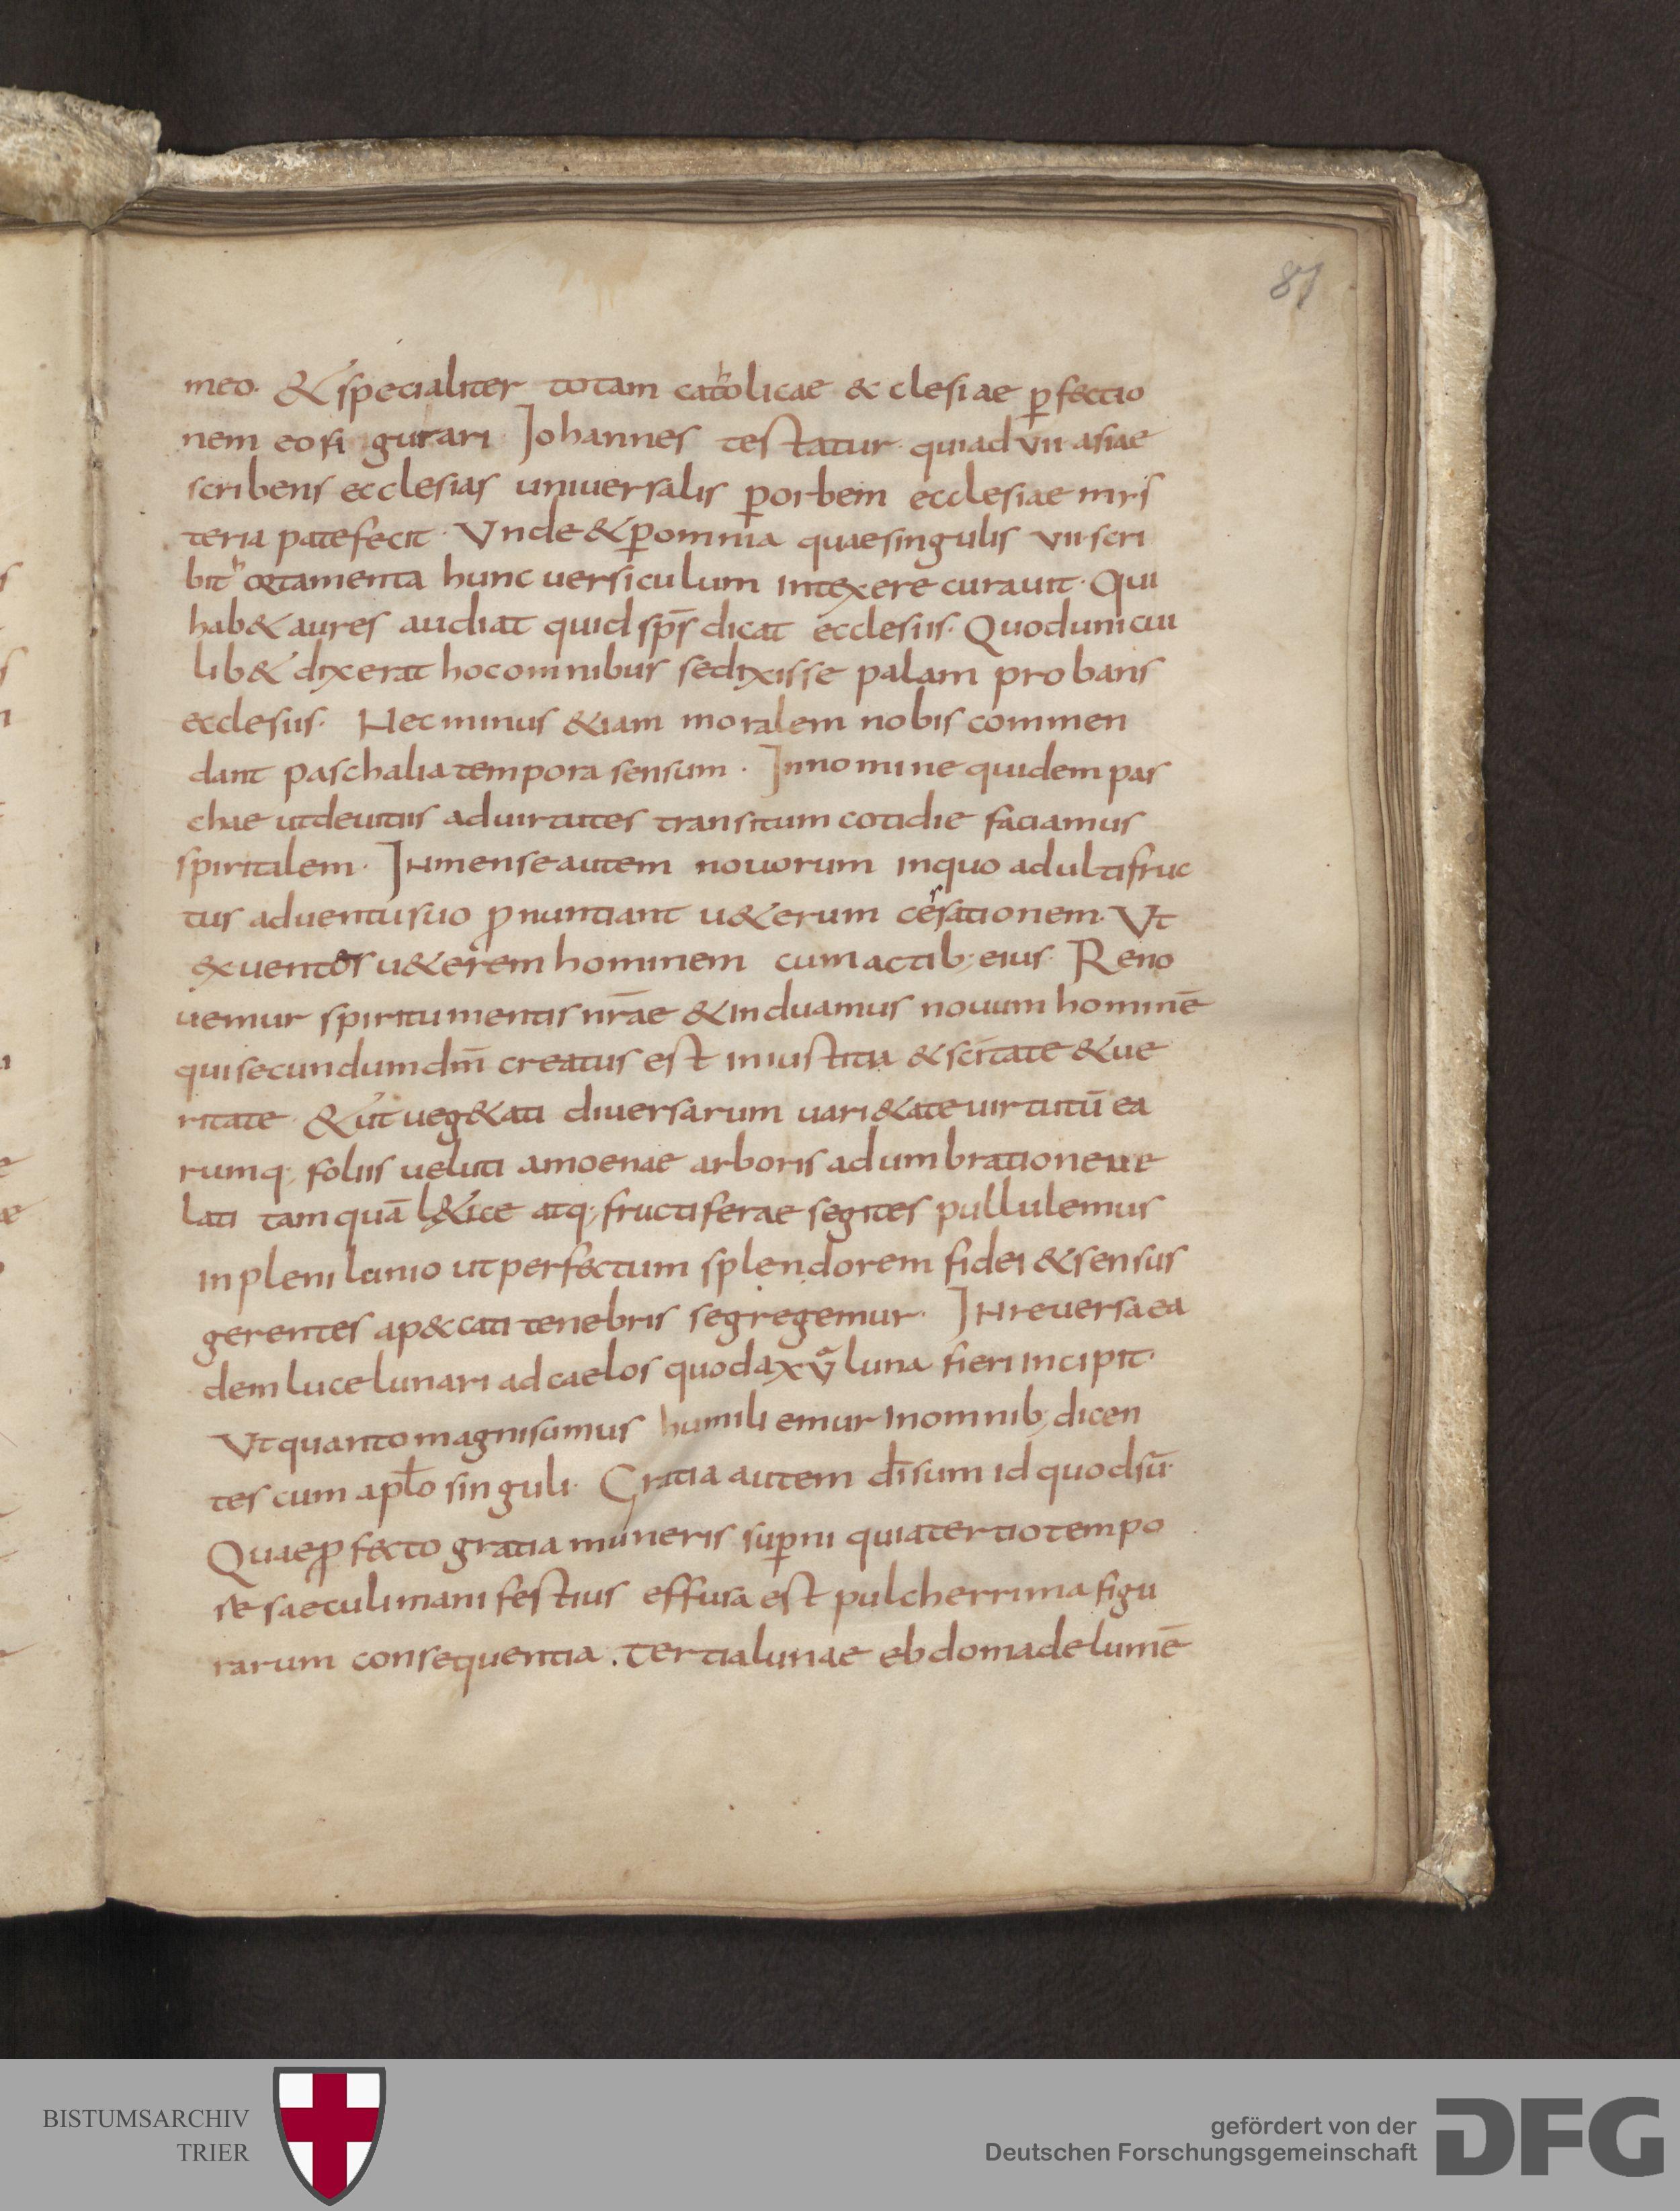 87
meo. & specialiter totam catholicae & clesiae ꝑfectio
nem eo fi gurari Johannes testatur. quiad vii asiae
scribens ecclesias uniuersalis ꝑorbem ecclesiae mis
teria patefecit. Vnde & ꝑomnia quaesingulis vii. scri
bit hortamenta hunc uersiculum intexere curauit. Qui
hab& aures audiat quid sp̅s dicat ecclesiis. Quodunicui
lib& dixerat hocomnibus sedixisse palam probans
ecclesiis. Hecminus &iam moralem nobis commen
dant paschalia tempora sensum. Innomine quidem pas
chae utdeuitiis aduirtutes transitum cotidie faciamus
spiritalem. INmense autem nouorum inquo adultifruc
tus aduentusuo ꝓnuntiant u&erum cessationem. Vt
exuentes u&erem hominem cumactib; eius. Reno
uemur spiritu mentis nr̅ae & induamus nouum hominē
quisecundumdm̅ creatus est iniustitia & sc̅itate & ue
ritate & ut ueg&ati diuersarum uari&ate uirtutū ea
rumq; foliis ueluti amoenae arboris adumbratione ue
lati tamquā l&ice atq; fructiferae segites pullulemus
inpleni lunio utperfectum splendorem fidei & sensus
gerentes ap&cati tenebris segregemur. INreuersa ea
dem luce lunari ad caelos quodaxv luna fieri incipit.
Vtquanto magnisumus humili emur Inomnib; dicen
tes cum apl̅o singuli. Gratia autem di̅sum id quodsū.
Quae ꝓfecto gratia muneris suꝑni quiatertiotempo
re saeculi manifestius effusa est pulcherrima figu
rarum consequentia. Tertialunae ebdomadelumē
BISTUMSARCHIV
TRIER
gefördert von der
Deutschen Forschungsgemeinschaft
DFG